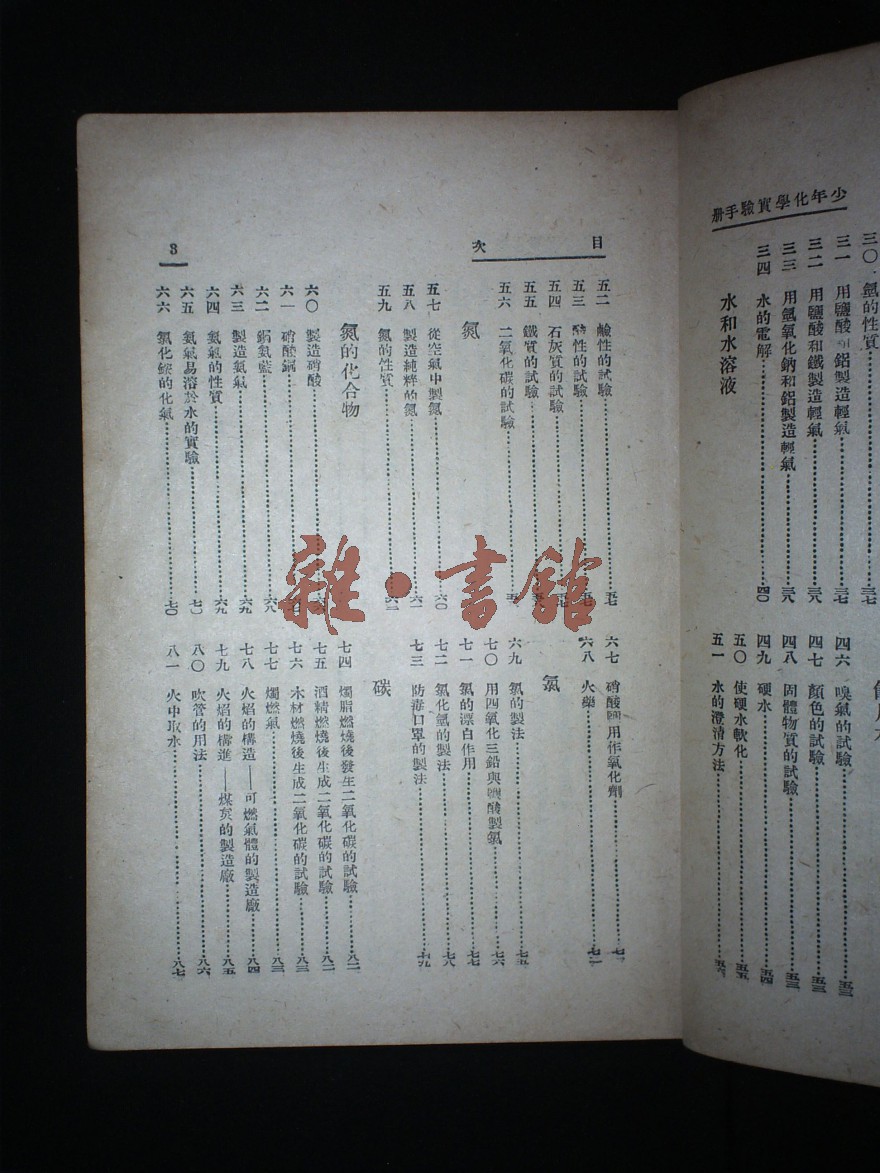 少年化學實驗手册
三〇 氫的性質……三七
三一 用鹽酸和鋁製造輕氣……三七
三二 用鹽酸和鐵製造輕氣……三八
三三 用氫氧化鈉和鋁製造輕氣……三八
三四 水的電解……四〇
水和水溶液
四六 嗅氣的試驗……五三
四七 顏色的試驗……五三
四八 固體物質的試驗……五三
四九 硬水……五四
五〇 使硬水軟化……五五
五一 水的澄清方法……五六
目次
3
五二 鹼性的試驗……五七
五三 酸性的試驗……五七
五四 石灰質的試驗……五七
五五 鐵質的試驗……五八
五六 二氧化碳的試驗
氮
五七 從空氣中製氮……六〇
五八 製造純粹的氮……六一
五九 氮的性質……六二
氮的化合物
六〇 製造硝酸
六一 硝酸銅
六二 銅氨藍……六八
六三 製造氨氣……六九
六四 氨氣的性質……六九
六五 氨氣易溶於水的實驗……七〇
六六 氯化銨的化氣……七〇
六七 硝酸 用作氧化劑……七一
六八 火藥……七二
氯
六九 氯的製法……七五
七〇 用四氧化三鉛與鹽酸製氯……七六
七一 氯的漂白作用……七七
七二 氯化氫的製法……七八
七三 防毒口罩的製法……七九
碳
七四 燭脂燃燒後發生二氧化碳的試驗……八二
七五 酒精燃燒後生成二氧化碳的試驗……八二
七六 木材燃燒後生成二氧化碳的試驗……八三
七七 燭燃氣……八三
七八 火焰的構造——可燃氣體的製造廠……八四
七九 火焰的構進——煤炭的製造廠……八五
八〇 吹管的用法……八六
八一 火中取水……八七
雜·書館